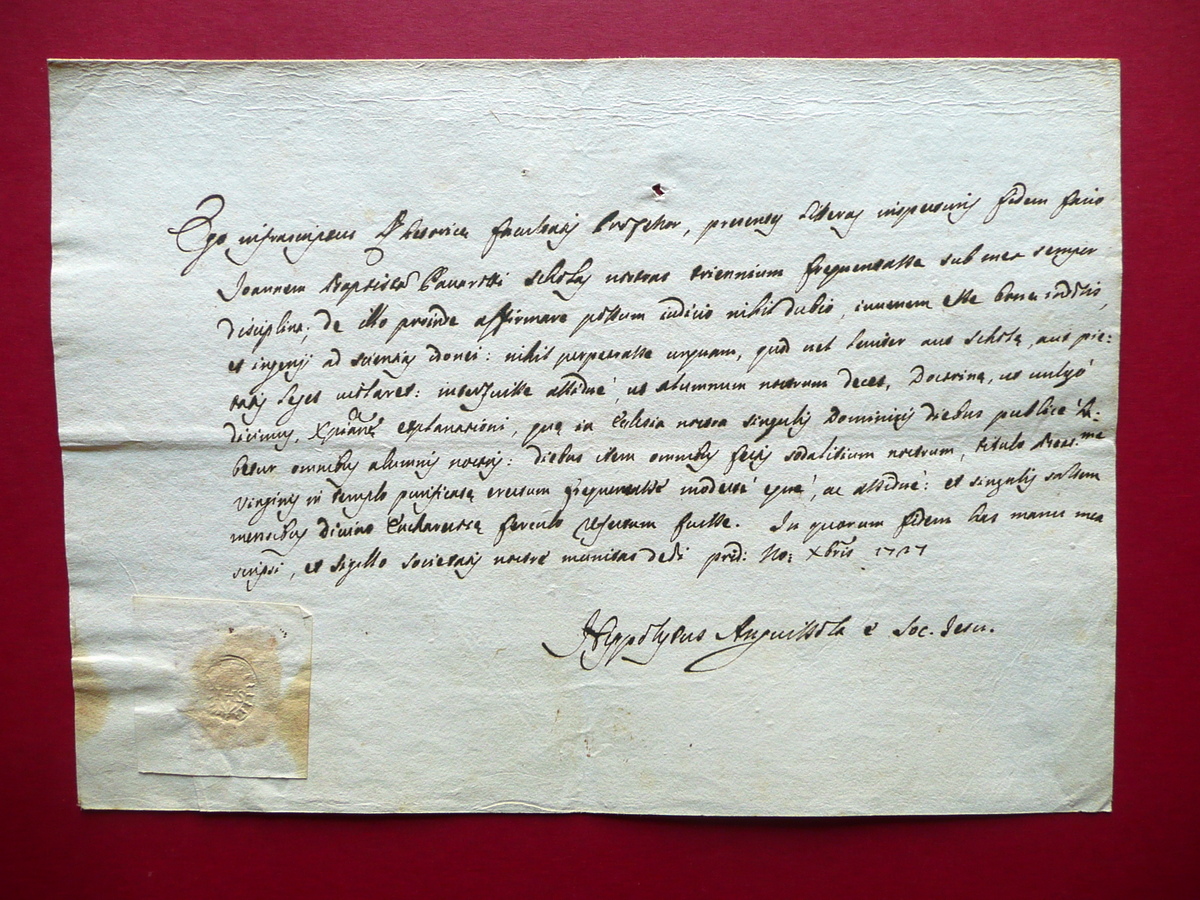 Ego infrascriptus Rhetoricę facultatis Professor, presentes litteras inspecturis fidem facio
Joannem Baptistã Pavarotti scholas nostras triennium frequentasse sub mea semper
disciplina; de illo proinde affirmare possum iudicio nihil dubio, iuuenem esse bonę indolis,
et ingenij ad scientias idonei: nihil perpetrasse unquam, quod uel leuiter aut scholę, aut pie:
tatis leges uiolaret: interfuisse assidué, ut alumnum nostrum decet, Doctrinę, ut uulgó
dicimus, Xpianę explanationi, quę in Eclesia nostra singulis Dominicis diebus publicé ha:
betur omnibus alumnis nostris: diebus item omnibus festis sodalitium nostrum, titulo Beatis.me
Virginis in templo purificatę erectum frequentasse modesté equé, ac assidué: et singulis saltem
mensibus diuino Eucharistię ferculo refectum fuisse. In quorum fidem has manu mea
scripsi, et sigillo societatis nostrę munitas dedi prid: No: Xbris 1727
Hippolytus Anguissola è Soc. Jesu.